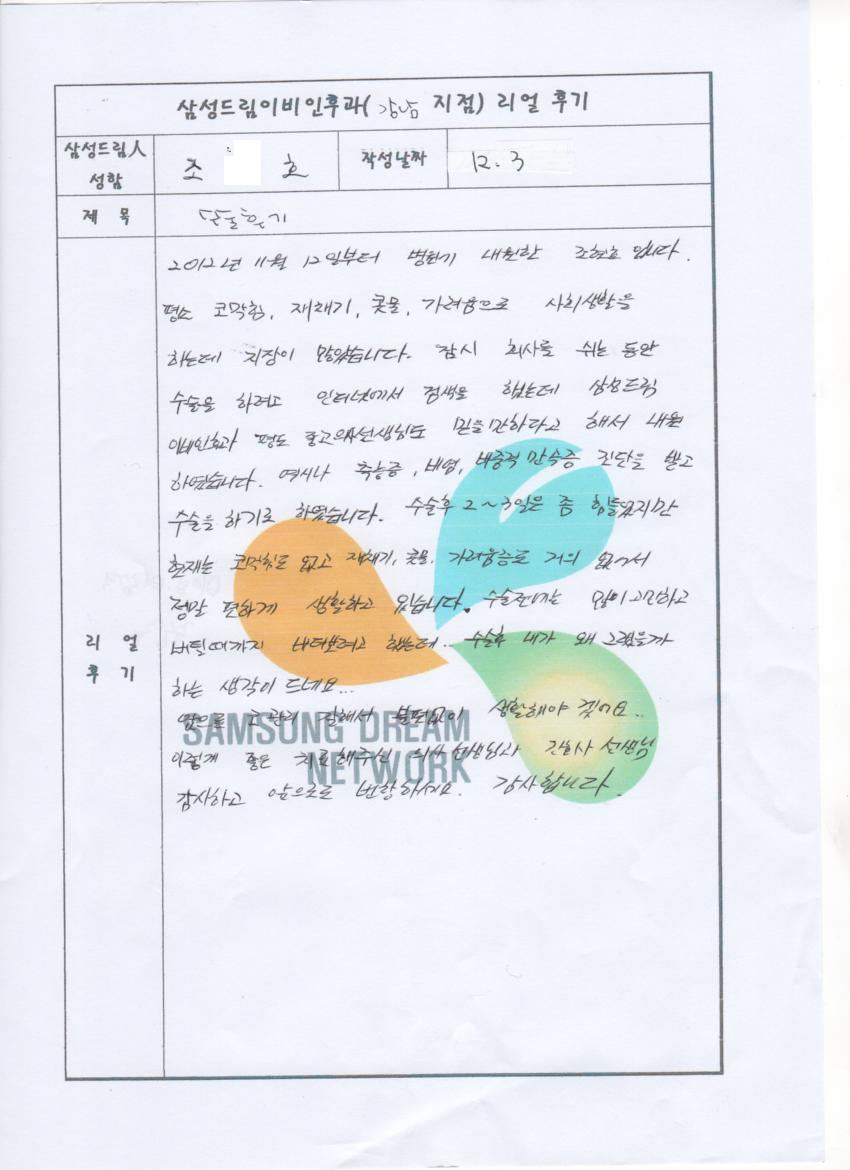 삼성드림이비인후과(강남 지점) 리얼 후기
삼성드림人 성함
조 호
작성날짜
12. 3
제 목
수술후기
2012년 11월 12일부터 병원에 내원한 조현호 입니다.
평소 코막힘, 재채기, 콧물, 가려움으로 사회생활을
하는데 지장이 많았습니다. 잠시 회사를 쉬는 동안
수술을 하려고 인터넷에서 검색을 했는데 삼성드림
이비인후과 평도 좋고 의사선생님도 믿을만하다고 해서 내원
하였습니다. 역시나 축농증, 비염, 비중격 만곡증 진단을 받고
수술을 하기로 하였습니다. 수술후 2~3일은 좀 힘들었지만
현재는 코막힘도 없고 재채기, 콧물, 가려움증도 거의 없어서
정말 편하게 생활하고 있습니다. 수술전에는 많이 고민하고
버틸때까지 버텨보려고 했는데... 수술후 내가 왜 그랬을까
하는 생각이 드네요...
앞으로 코관리 잘해서 불편없이 생활해야 겠어요..
이렇게 좋은 치료해주신 의사 선생님과 간호사 선생님
감사하고 앞으로도 번창하세요. 감사합니다.
리 얼
후 기
SAMSUNG DREAM
NETWORK